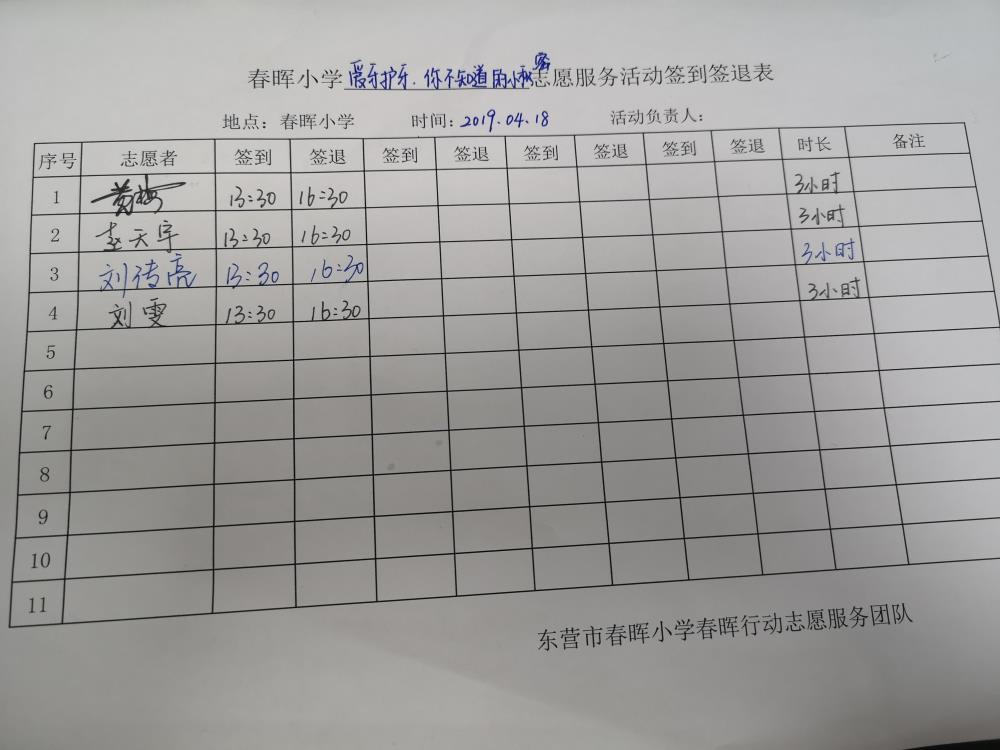 春晖小学爱牙护牙.你不知道的小秘密志愿服务活动签到签退表
地点：春晖小学 时间：2019.04.18 活动负责人：
序号 志愿者 签到 签退 签到 签退 签到 签退 签到 签退 时长 备注
1 13:30 16:30 3小时
2 赵天宇 13:30 16:30 3小时
3 刘传亮 13:30 16:30 3小时
4 刘雯 13:30 16:30 3小时
5
6
7
8
9
10
11
东营市春晖小学春晖行动志愿服务团队